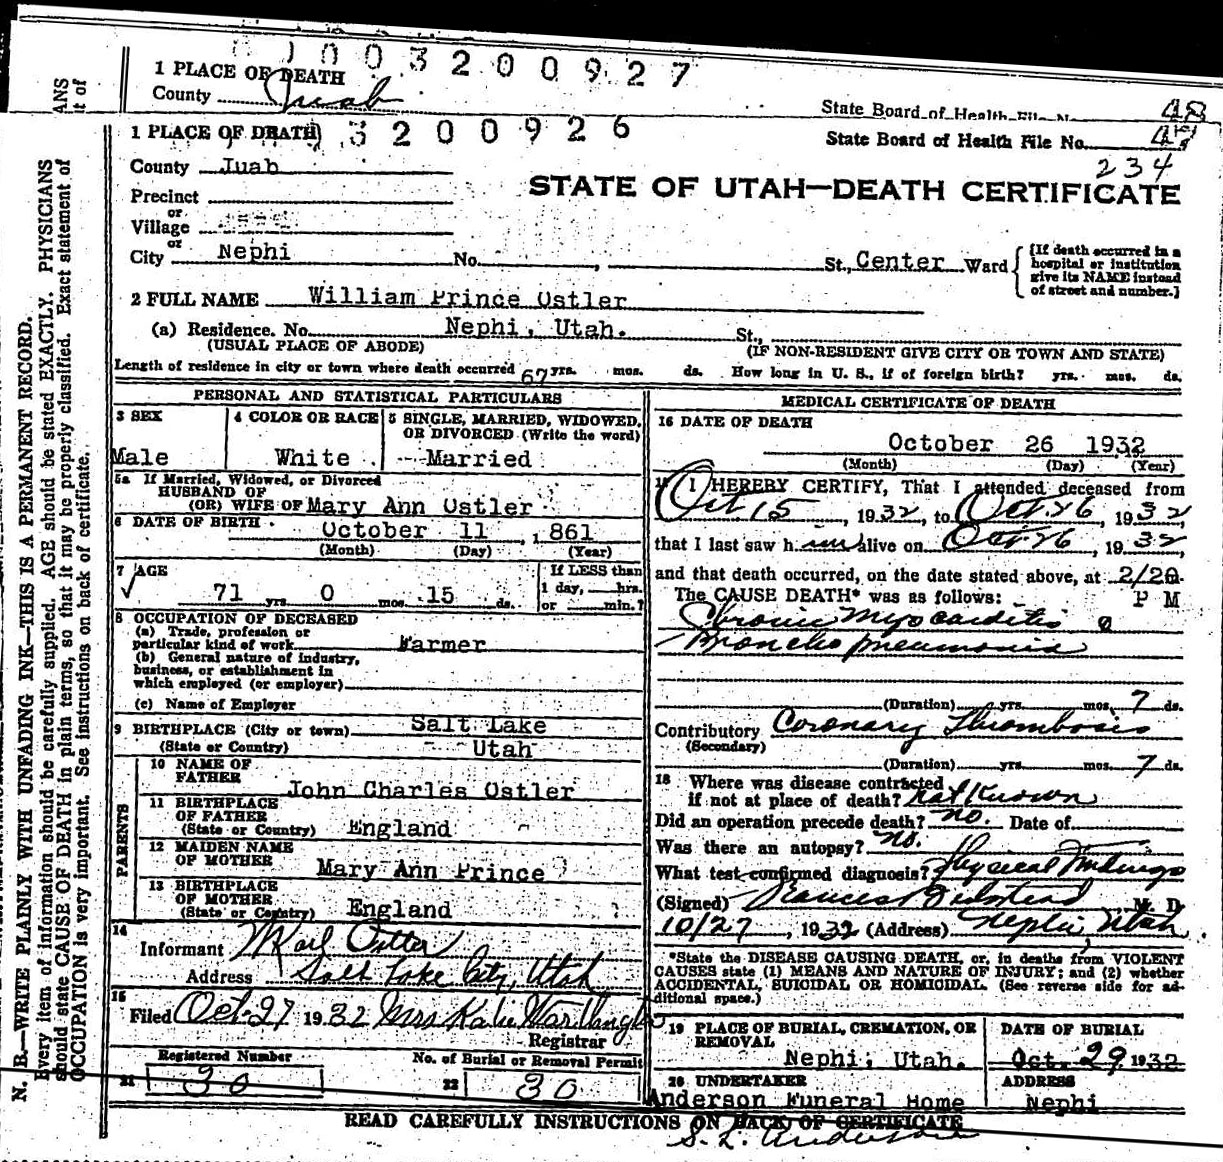 0 0 3 2 0 0 9 2 7
1 PLACE OF DEATH
County Juab
State Board of Health File N 48
1 PLACE OF DEATH 3 2 0 0 9 2 6
State Board of Health File No.
234
County Juab
STATE OF UTAH—DEATH CERTIFICATE
Precinct
or
Village
or
City Nephi No. , St., Center Ward
{If death occurred in a hospital or institution give its NAME instead of street and number.}
2 FULL NAME William Prince Ostler
(a) Residence. No. Nephi, Utah. St.,
(USUAL PLACE OF ABODE) (IF NON-RESIDENT GIVE CITY OR TOWN AND STATE)
Length of residence in city or town where death occurred 67 yrs. mos. ds. How long in U. S., if of foreign birth? yrs. mos. ds.
PERSONAL AND STATISTICAL PARTICULARS
3 SEX
Male
4 COLOR OR RACE
White
5 SINGLE, MARRIED, WIDOWED,
OR DIVORCED (Write the word)
Married
5a If Married, Widowed, or Divorced
HUSBAND OF
(OR) WIFE OF Mary Ann Ostler
6 DATE OF BIRTH
October 11 , 1861
(Month) (Day) (Year)
7 AGE
71 yrs. 0 mos. 15 ds.
If LESS than
1 day, hrs.
or min.?
8 OCCUPATION OF DECEASED
(a) Trade, profession or
particular kind of work Farmer
(b) General nature of industry,
business, or establishment in
which employed (or employer)
(c) Name of Employer
9 BIRTHPLACE (City or town) Salt Lake
(State or Country) Utah
PARENTS
10 NAME OF
FATHER John Charles Ostler
11 BIRTHPLACE
OF FATHER
(State or Country) England
12 MAIDEN NAME
OF MOTHER Mary Ann Prince
13 BIRTHPLACE
OF MOTHER
(State or Country) England
14
Informant Karl Ostler
Address Salt Lake City, Utah
15
Filed Oct-27 1932 Mrs Katie
Registrar
Registered Number
21 30
No. of Burial or Removal Permit
22 30
MEDICAL CERTIFICATE OF DEATH
16 DATE OF DEATH
October 26 1932
(Month) (Day) (Year)
I HEREBY CERTIFY, That I attended deceased from
Oct. 15, 1932, to Oct. 26, 1932
that I last saw him alive on Oct 26, 1932,
and that death occurred, on the date stated above, at 2/20
The CAUSE DEATH* was as follows: P M
Chronic Myocarditis
Broncho pneumonia
(Duration) yrs. mos. 7 ds.
Contributory Coronary Thrombosis
(Secondary)
(Duration) yrs. mos. 7 ds.
18 Where was disease contracted
if not at place of death? Not Known
Did an operation precede death? no. Date of
Was there an autopsy? no.
What test confirmed diagnosis? Physical Findings
(Signed) M. D.
10/27, 1932 (Address) Nephi, Utah.
*State the DISEASE CAUSING DEATH, or, in deaths from VIOLENT
CAUSES state (1) MEANS AND NATURE OF INJURY; and (2) whether
ACCIDENTAL, SUICIDAL OR HOMICIDAL. (See reverse side for ad-
ditional space.)
19 PLACE OF BURIAL, CREMATION, OR
REMOVAL
Nephi, Utah.
DATE OF BURIAL
Oct. 29 1932
20 UNDERTAKER
Anderson Funeral Home
ADDRESS
Nephi
READ CAREFULLY INSTRUCTIONS ON BACK OF CERTIFICATE
S. L. Anderson
N. B.—WRITE PLAINLY WITH UNFADING INK—THIS IS A PERMANENT RECORD.
Every item of information should be carefully supplied. AGE should be stated EXACTLY. PHYSICIANS
should state CAUSE OF DEATH in plain terms, so that it may be properly classified. Exact statement of
OCCUPATION is very important. See instructions on back of certificate.
ANS
t of